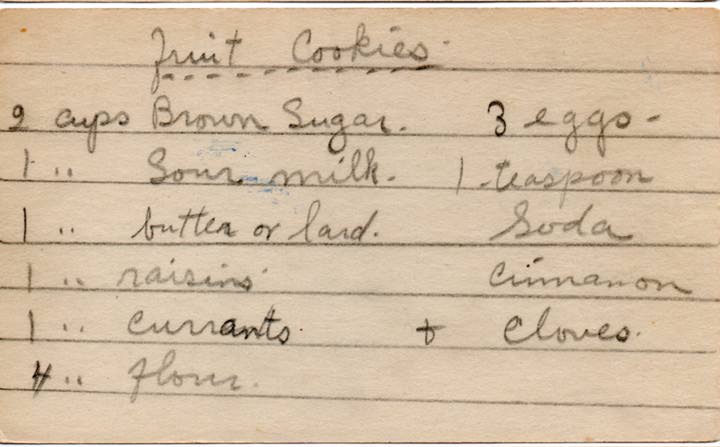 Fruit Cookies.
2 cups Brown Sugar. 3 eggs -
1 " Sour milk. 1 teaspoon
1 " butter or lard. Soda
1 " raisins Cinnamon
1 " currants + Cloves.
4 " flour.